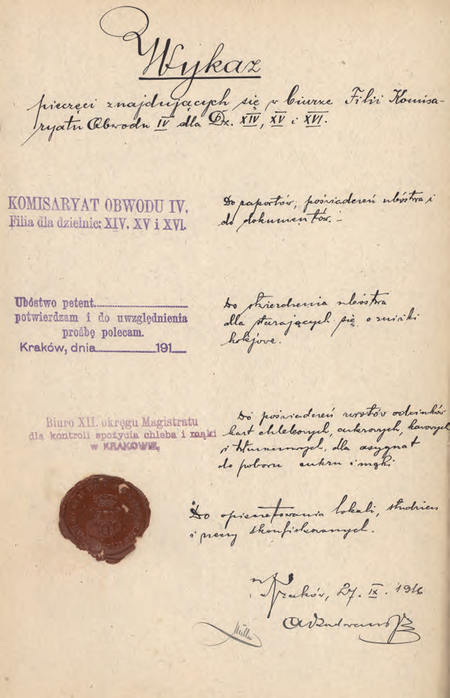 Wykaz
pieczęci znajdujących się w biurze Filii Komisa-
ryatu Obwodu IV dla Dz. XIV, XV i XVI.
KOMISARYAT OBWODU IV.
Filia dla dzielnic: XIV, XV i XVI.
Do raportów, poświadczeń ubóstwa i
do dokumentów.-
Ubóstwo petent
potwierdzam i do uwzględnienia
prośbę polecam.
Kraków, dnia 191
Do stwierdzenia ubóstwa
dla starających się o zniżki
kolejowe.
Biuro XII. okręgu Magistratu
dla kontroli spożycia chleba i mąki
w KRAKOWIE.
Do poświadczeń zwrotów odcinków
kart chlebowych, cukrowych, kawowych
i tłuszczowych, dla asygnat
do poboru cukru i mąki
Do opieczętowania lokali, studzien
i rzeczy skonfiskowanych.
Kraków, 27. IX. 1916